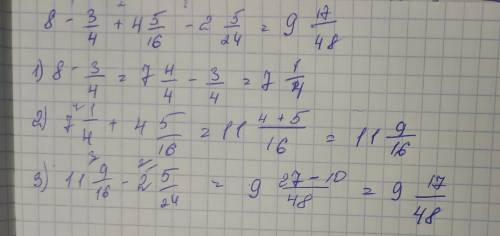 8 - 3/4 + 4 5/16 - 2 5/24 = 9 17/48
1) 8 - 3/4 = 7 4/4 - 3/4 = 7 1/4
2) 7 1/4 + 4 5/16 = 11 (4+5)/16 = 11 9/16
3) 11 9/16 - 2 5/24 = 9 (27-10)/48 = 9 17/48